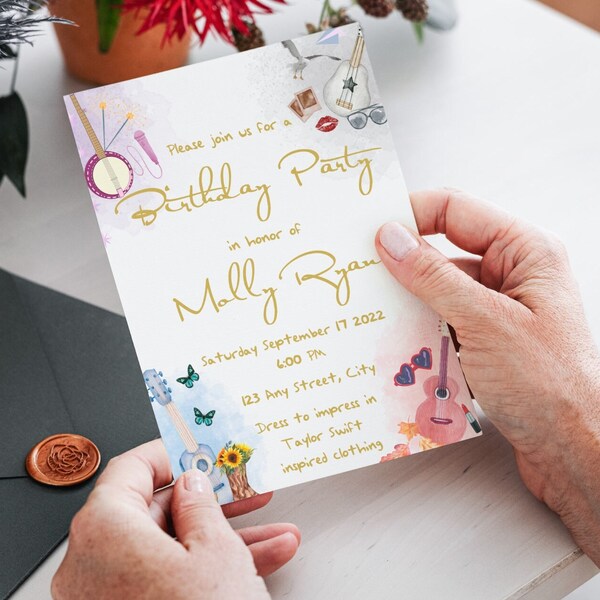 Please join us for a
Birthday Party
in honor of
Molly Ryan
Saturday September 17 2022
6:00 PM
123 Any Street, City
Dress to impress in
Taylor Swift
inspired clothing